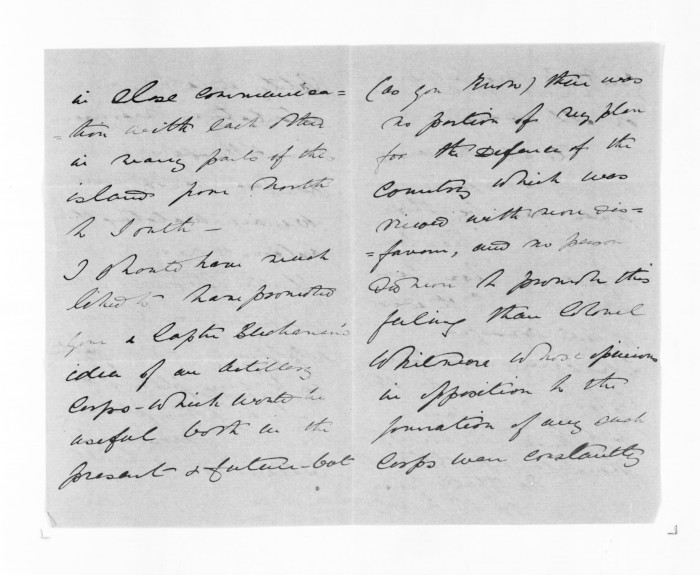 in close communica=
=tion with each other
in many parts of the
islands from North
to South –
I should have much
liked to have promoted
your & Captn Buchanan's
idea of an Artillery
Corps – which would be
useful both in the
present & future – but
(as you know) there was
no portion of my plan
for the Defence of the
Country which was
viewed with more dis=
=favour, and no person
did more to promote this
feeling than Colonel
Whitmore whose opinions
in opposition to the
formation of any such
Corps were constantly